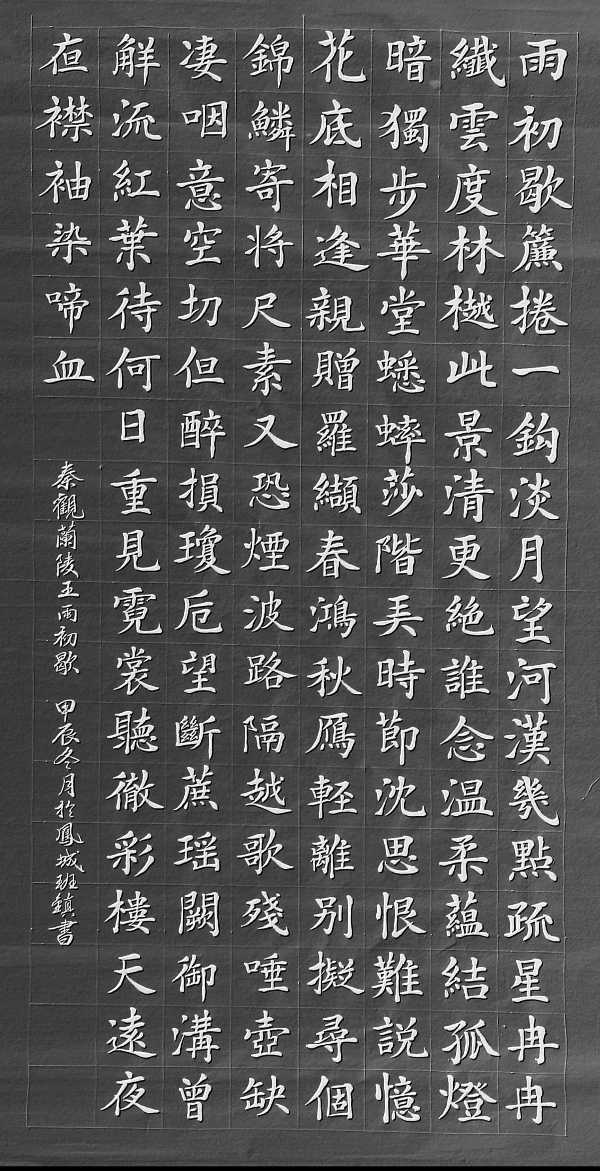 雨初歇簾捲一鈎淡月望河漢幾點疏星冉冉
纖雲度林樾此景清更絕誰念温柔蘊結孤燈
暗獨步華堂蟋蟀莎階弄時節沈思恨難說憶
花底相逢親贈羅纈春鴻秋鴈輕離别擬尋個
錦鱗寄将尺素又恐煙波路隔越歌殘唾壺缺
凄咽意空切但醉損瓊卮望斷蔗瑶闕御溝曾
解流紅葉待何日重見霓裳聽徹彩樓天遠夜
夜襟袖染啼血
秦觀蘭陵王雨初歇 甲辰冬月於鳳城班鎮書